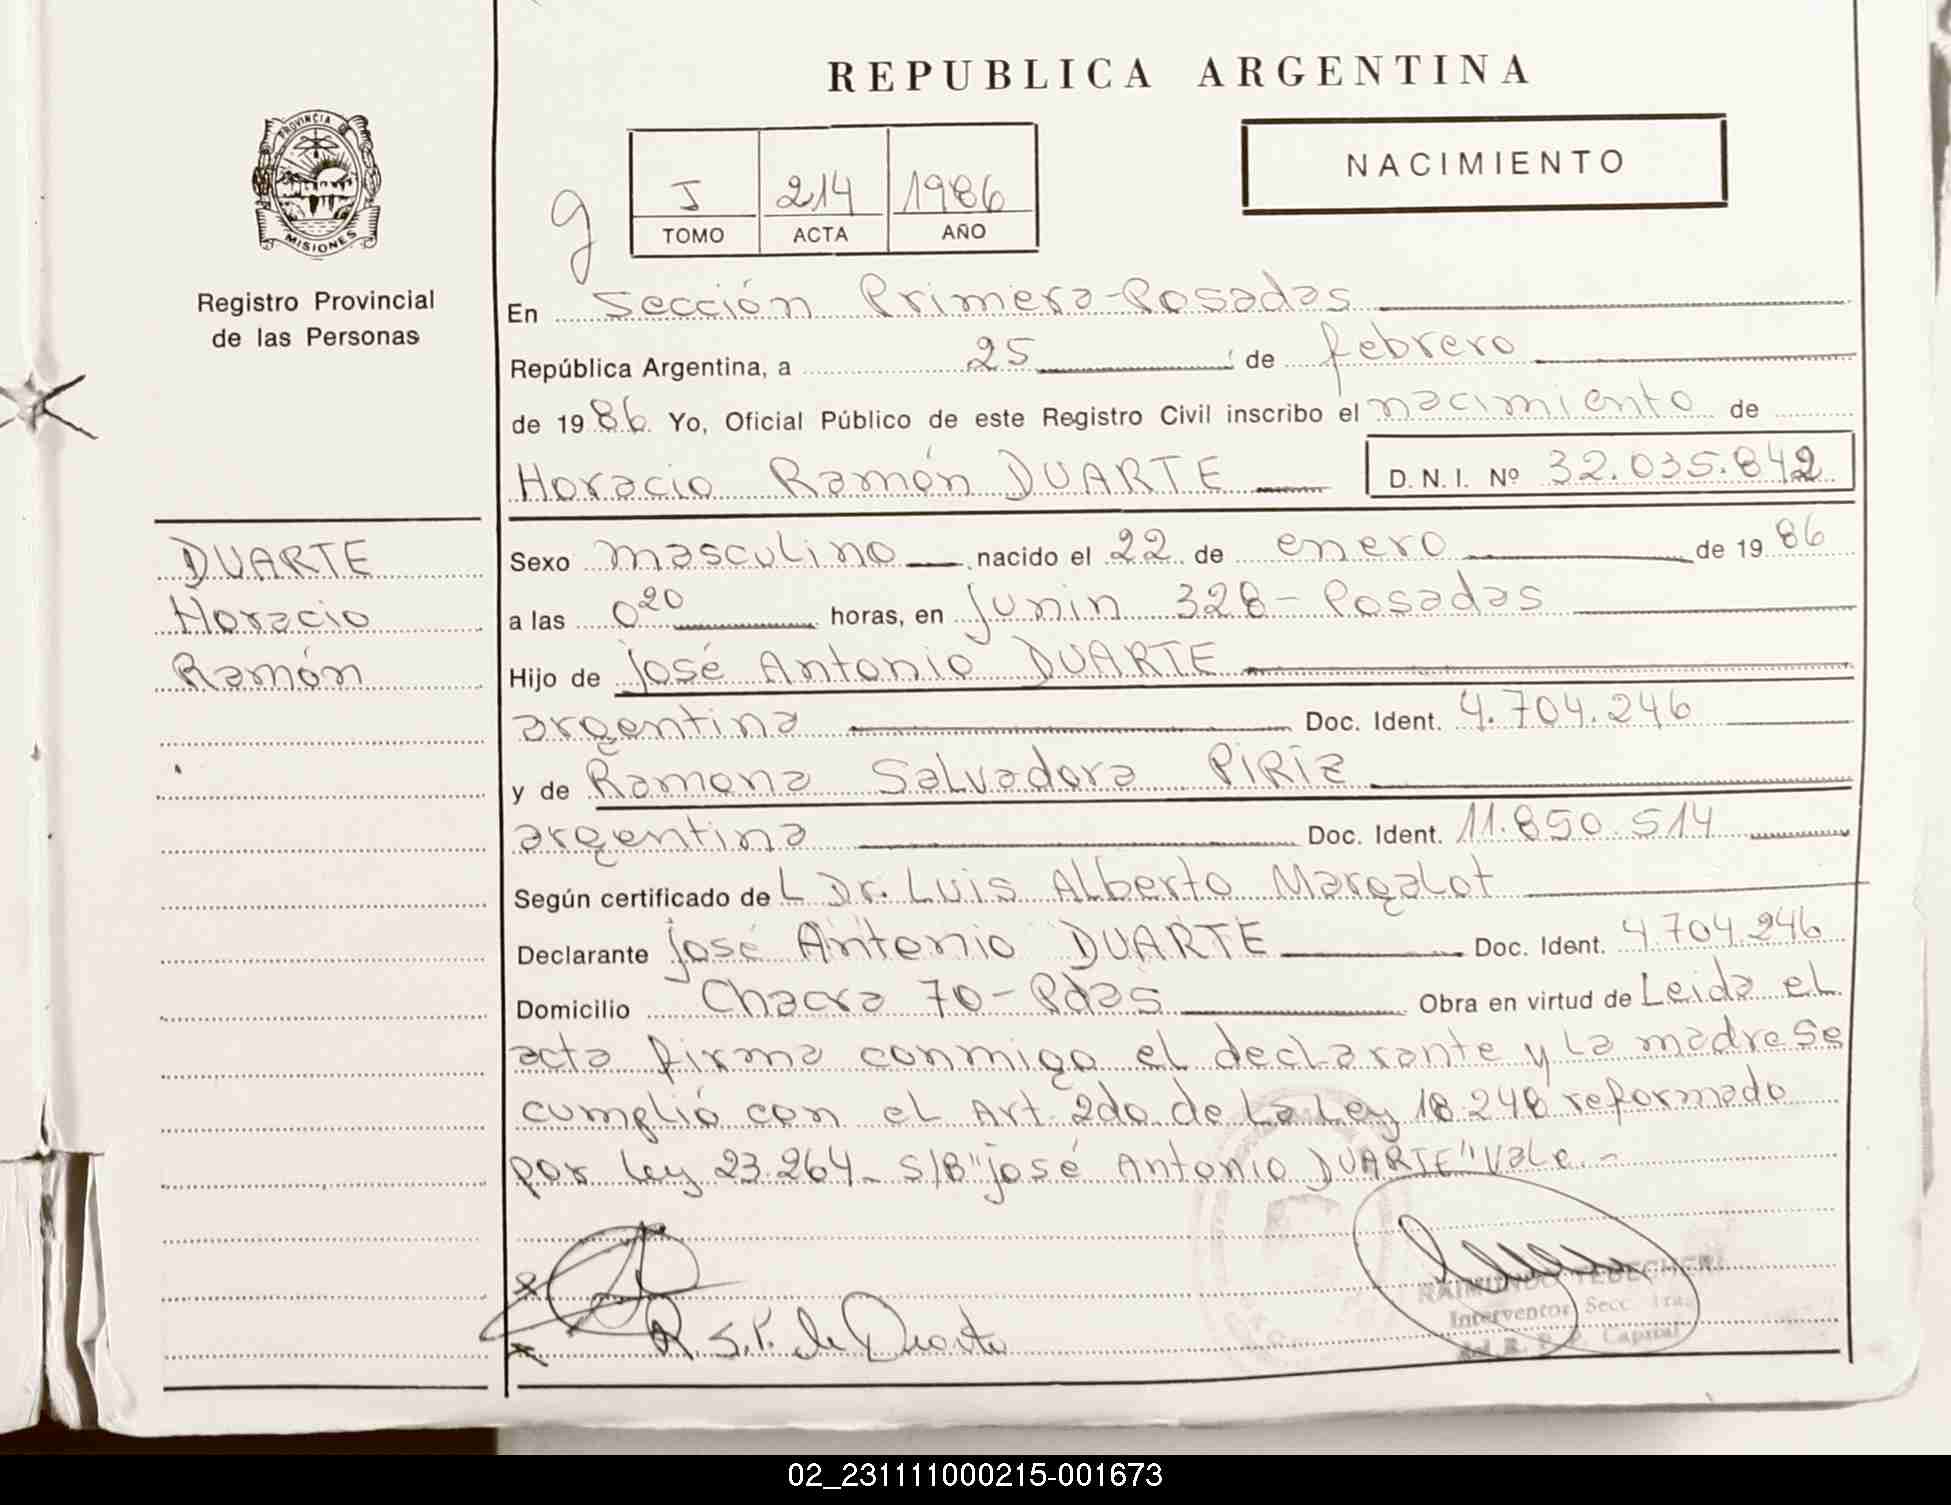 REPUBLICA ARGENTINA
PROVINCIA DE
MISIONES
Registro Provincial
de las Personas
NACIMIENTO
g
J 214 1986
TOMO ACTA AÑO
En Sección Primera-Posadas
República Argentina, a 25 de febrero
de 1986 Yo, Oficial Público de este Registro Civil inscribo el nacimiento de
Horacio Ramón DUARTE D.N.I. Nº 32.035.842
DUARTE
Horacio
Ramón
Sexo masculino nacido el 22 de enero de 1986
a las 0²⁰ horas, en Junin 328-Posadas
Hijo de José Antonio DUARTE
argentina Doc. Ident. 4.704.246
y de Ramona Salvadora PIRIZ
argentina Doc. Ident. 11.850.514
Según certificado de L Dr. Luis Alberto Margalot
Declarante José Antonio DUARTE Doc. Ident. 4.704.246
Domicilio Chacra 70-Pdas Obra en virtud de Leida el
acta firma conmigo el declarante y la madre Se
cumplió con el Art. 2do de la Ley 18.248 reformado
por ley 23.264- S/B"José Antonio DUARTE"Vale.-
R S.P. de Duarte
RAIMUNDO TEDEGHERI
Interventor Secc. 1ra.
del R. P. P. Capital
02_231111000215-001673